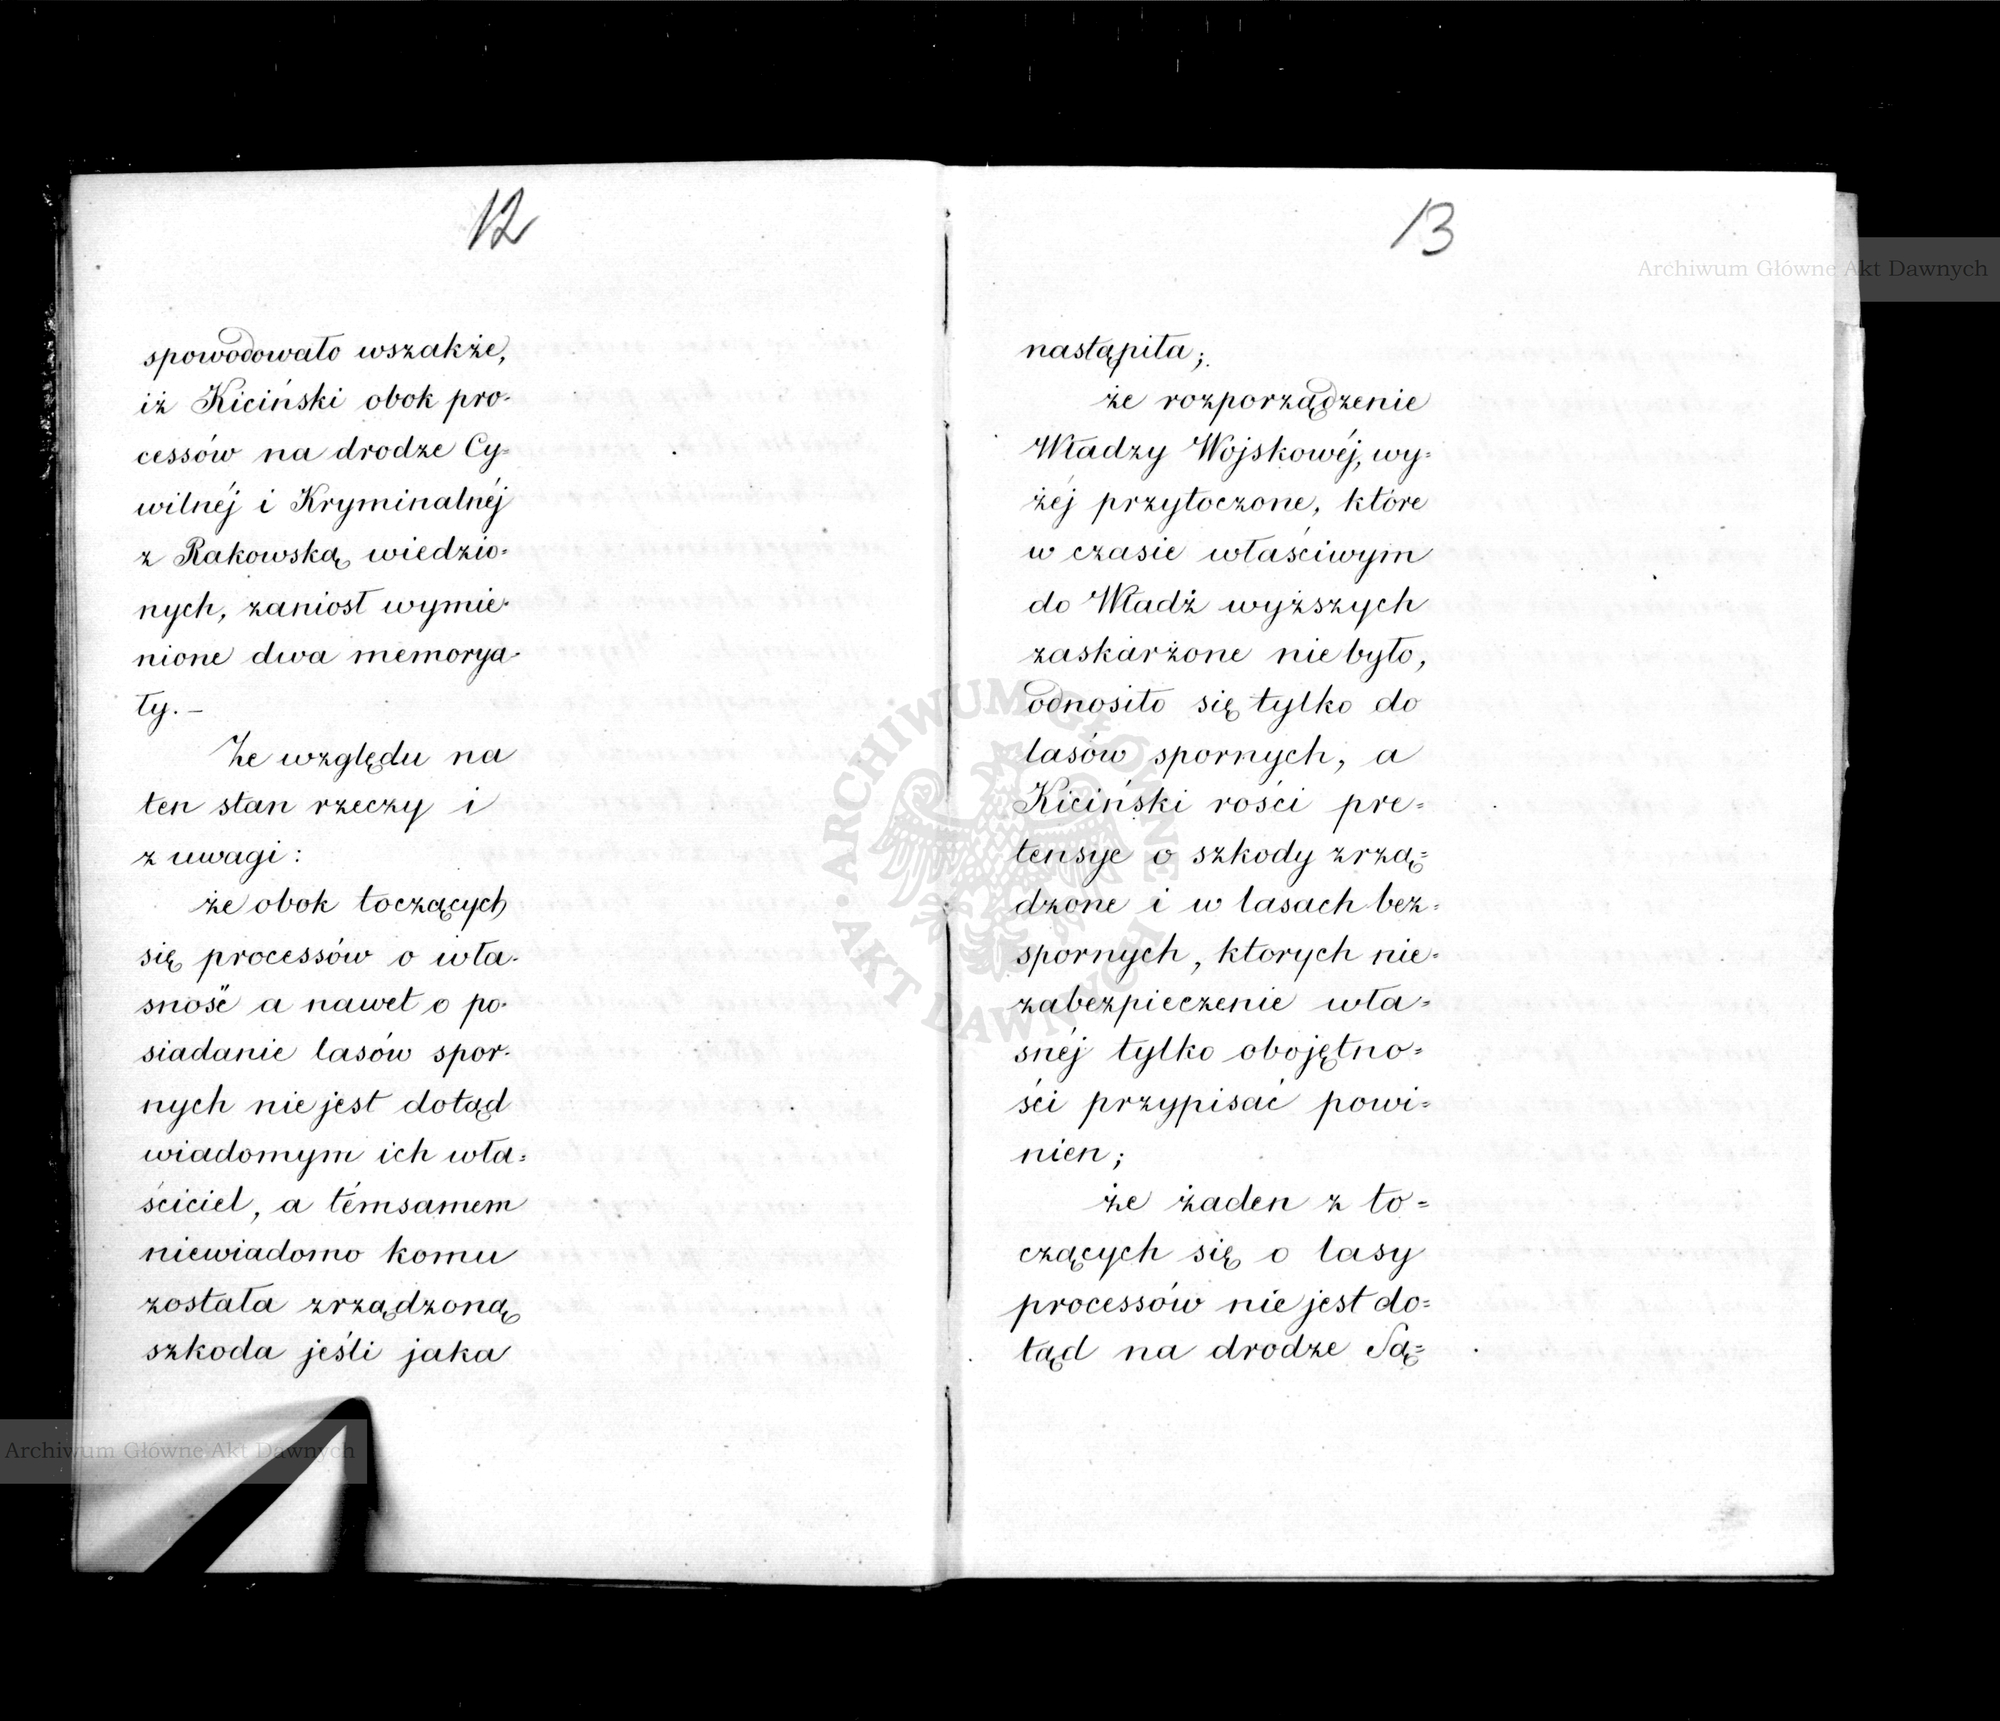 12
spowodowało wszakże,
iż Kiciński obok pro-
cessów na drodze Cy=
wilnéj i Kryminalnéj
z Rakowską wiedzio=
nych, zaniosł wymie-
nione dwa memorya-
ły. –
Ze względu na
ten stan rzeczy i
z uwagi:
że obok toczących
się processów o wła-
sność a nawet o po-
siadanie lasów spor-
nych nie jest dotąd
wiadomym ich wła=
ściciel, a témsamem
niewiadomo komu
została zrządzoną
szkoda jeśli jaka
13
nastąpiła;
że rozporządzenie
Władzy Wojskowéj, wy=
żéj przytoczone, które
w czasie właściwym
do Władź wyższych
zaskarżone nie było,
odnosiło się tylko do
lasów spornych, a
Kiciński rości pre=
tensye o szkody zrzą=
dzone i w lasach bez=
spornych, ktorych nie=
zabezpieczenie wła=
snéj tylko obojętno=
ści przypisać powi=
nien;
że żaden z to=
czących się o lasy
processów nie jest do=
tąd na drodze Są=
Archiwum Główne Akt Dawnych
Archiwum Główne Akt Dawnych
ARCHIWUM GŁÓWNE AKT DAWNYCH